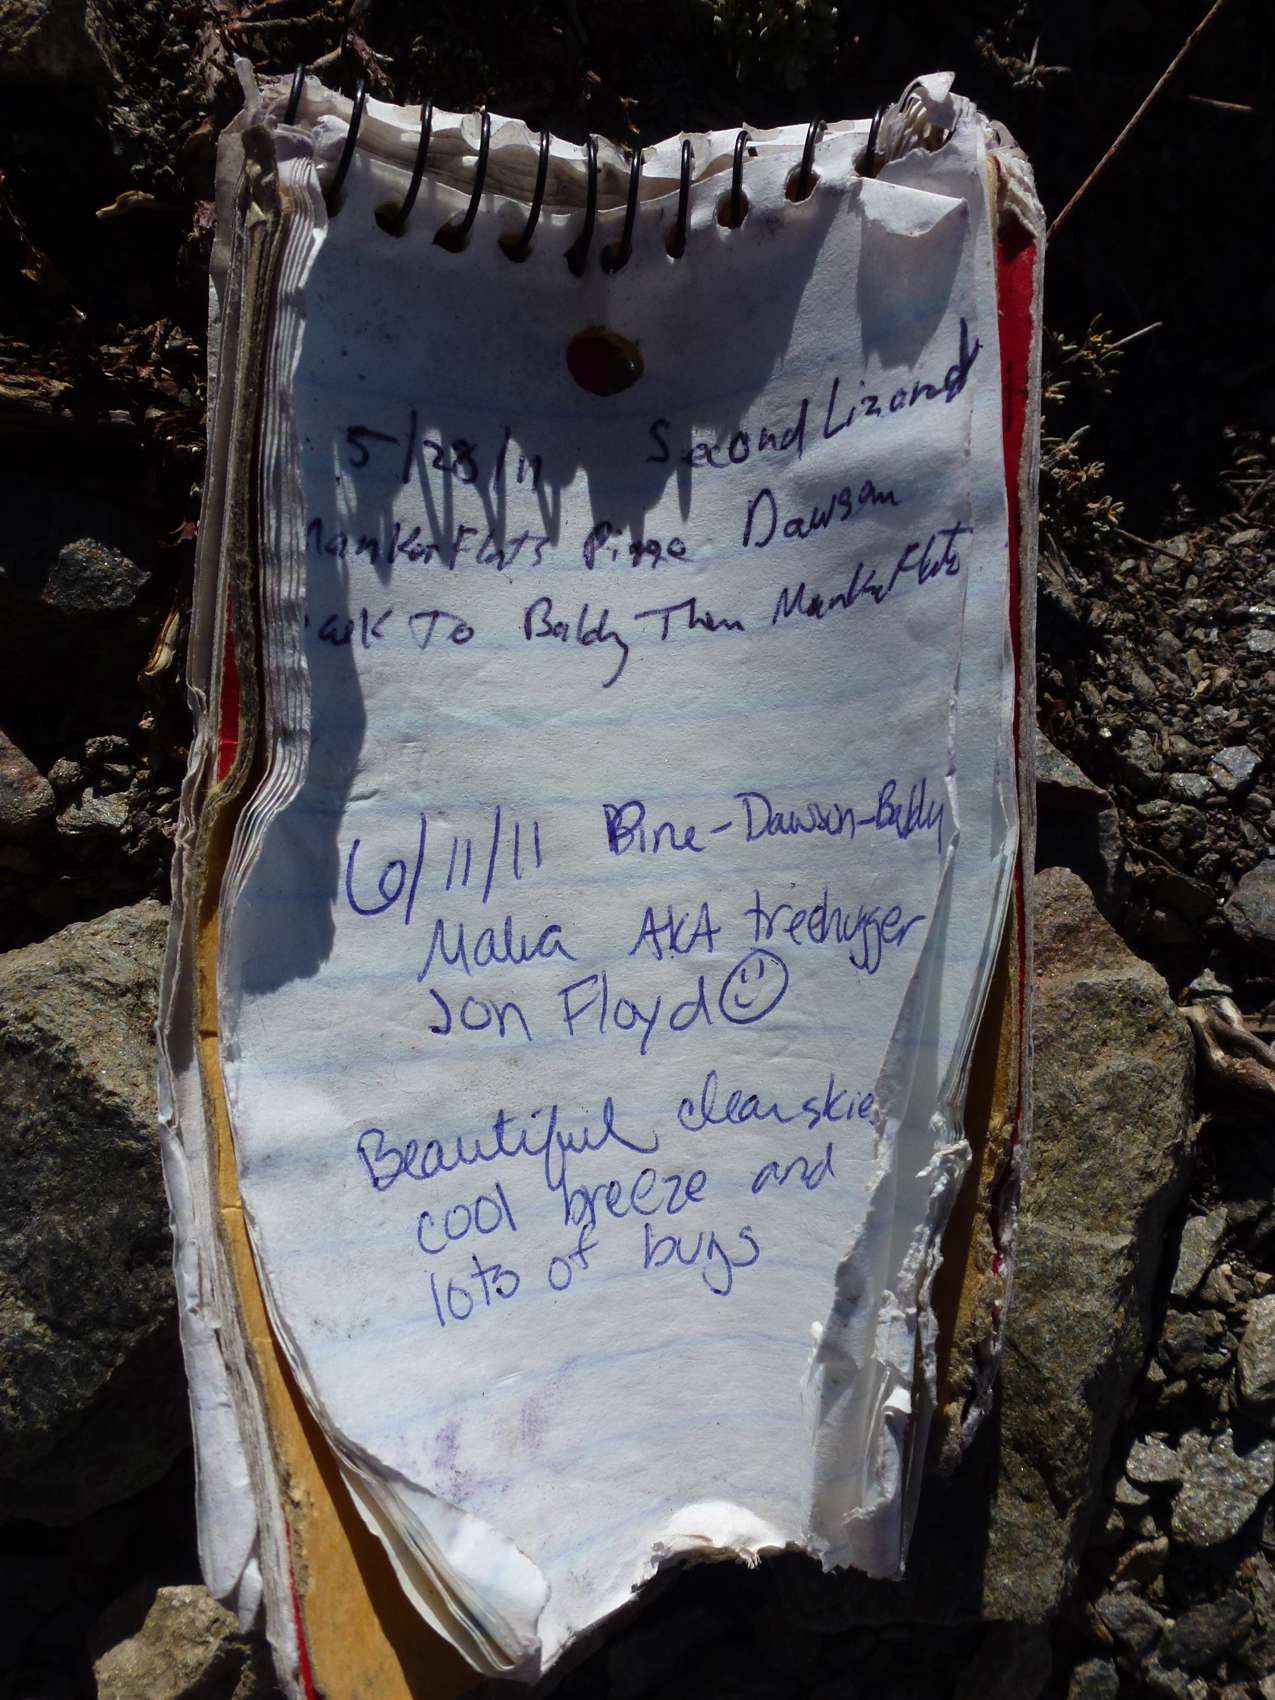 5/28/11 Second Lizard
Manker Flats Dawson
To Baldy Then Manker Flats
6/11/11 Pine-Dawson-Baldy
AKA treehugger
Jon Floyd
Beautiful clear skie
cool breeze and
lots of bugs